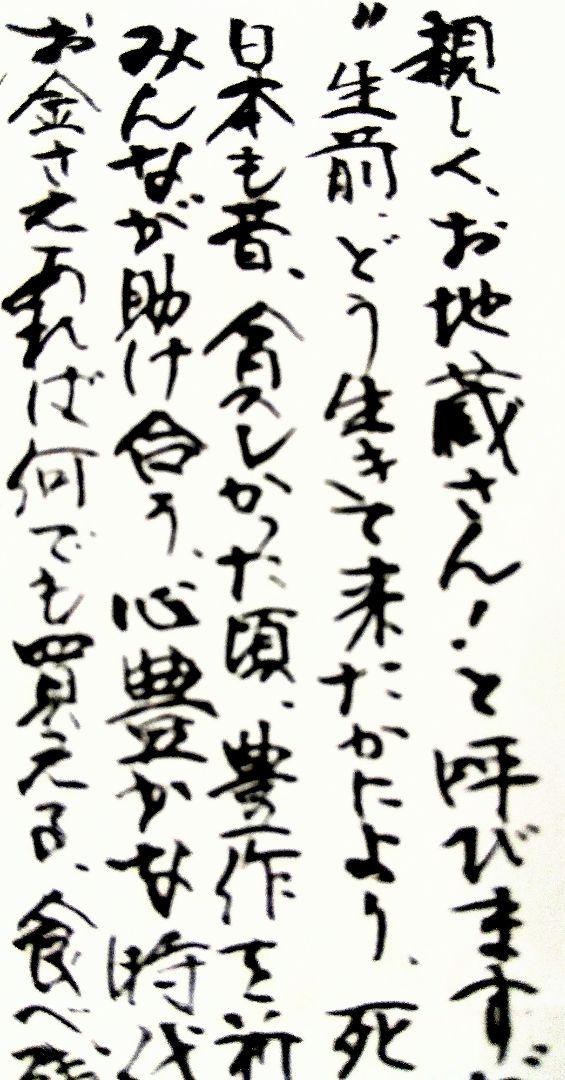 親しく、お地蔵さん!と呼びます
〃生前、どう生きて来たかにより、死
日本も昔、貧しかった頃、豊作を祈
みんなが助け合う、心豊かな時代
お金さえあれば何でも買える、食べ残